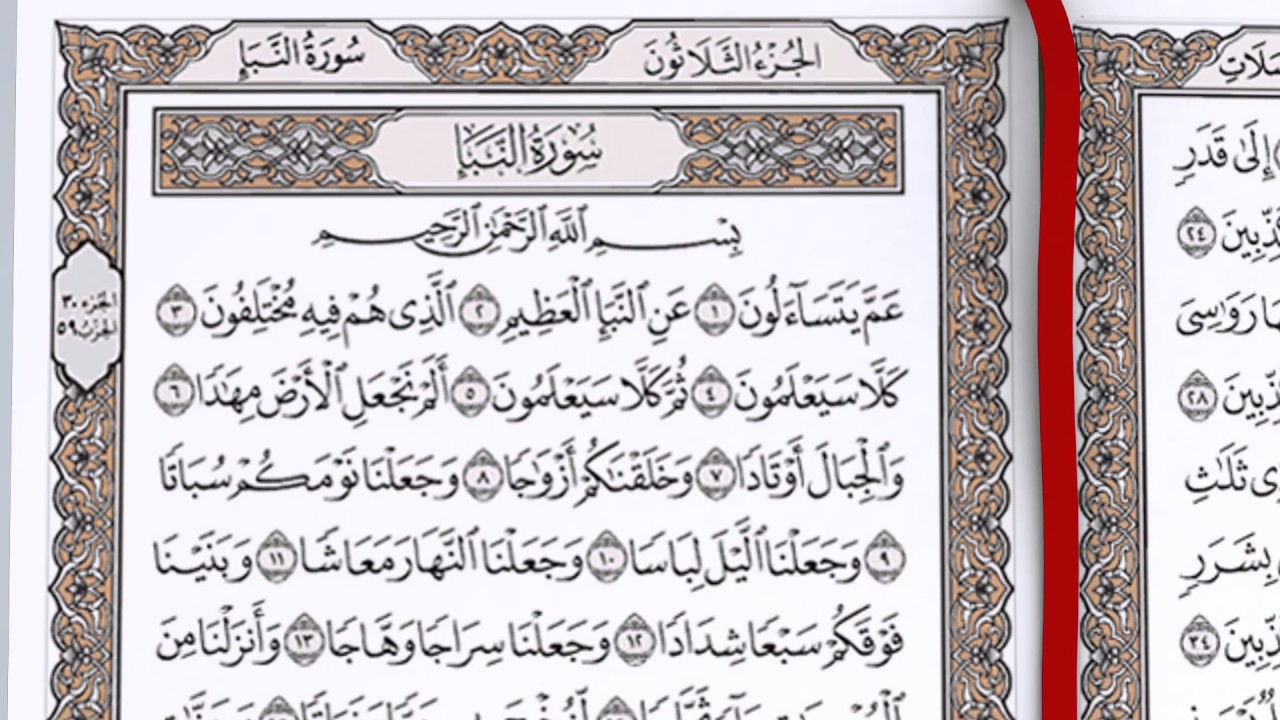 الجُزْءُ الثَّلَاثُونَ
سُورَةُ النَّبَإِ
سُورَةُ النَّبَإِ
بِسْمِ ٱللَّهِ ٱلرَّحْمَٰنِ ٱلرَّحِيمِ
عَمَّ يَتَسَآءَلُونَ ١ عَنِ ٱلنَّبَإِ ٱلْعَظِيمِ ٢ ٱلَّذِى هُمْ فِيهِ مُخْتَلِفُونَ ٣
كَلَّا سَيَعْلَمُونَ ٤ ثُمَّ كَلَّا سَيَعْلَمُونَ ٥ أَلَمْ نَجْعَلِ ٱلْأَرْضَ مِهَٰدًا ٦
وَٱلْجِبَالَ أَوْتَادًا ٧ وَخَلَقْنَٰكُمْ أَزْوَٰجًا ٨ وَجَعَلْنَا نَوْمَكُمْ سُبَاتًا
٩ وَجَعَلْنَا ٱلَّيْلَ لِبَاسًا ١٠ وَجَعَلْنَا ٱلنَّهَارَ مَعَاشًا ١١ وَبَنَيْنَا
فَوْقَكُمْ سَبْعًا شِدَادًا ١٢ وَجَعَلْنَا سِرَاجًا وَهَّاجًا ١٣ وَأَنزَلْنَا مِنَ
الجزء ٣٠
الحزب ٥٩
إِلَىٰ قَدَرٍ
٢٤
رَوَٰسِىَ
٢٨
ثَلَٰثِ
بِشَرَرٍ
٣٤